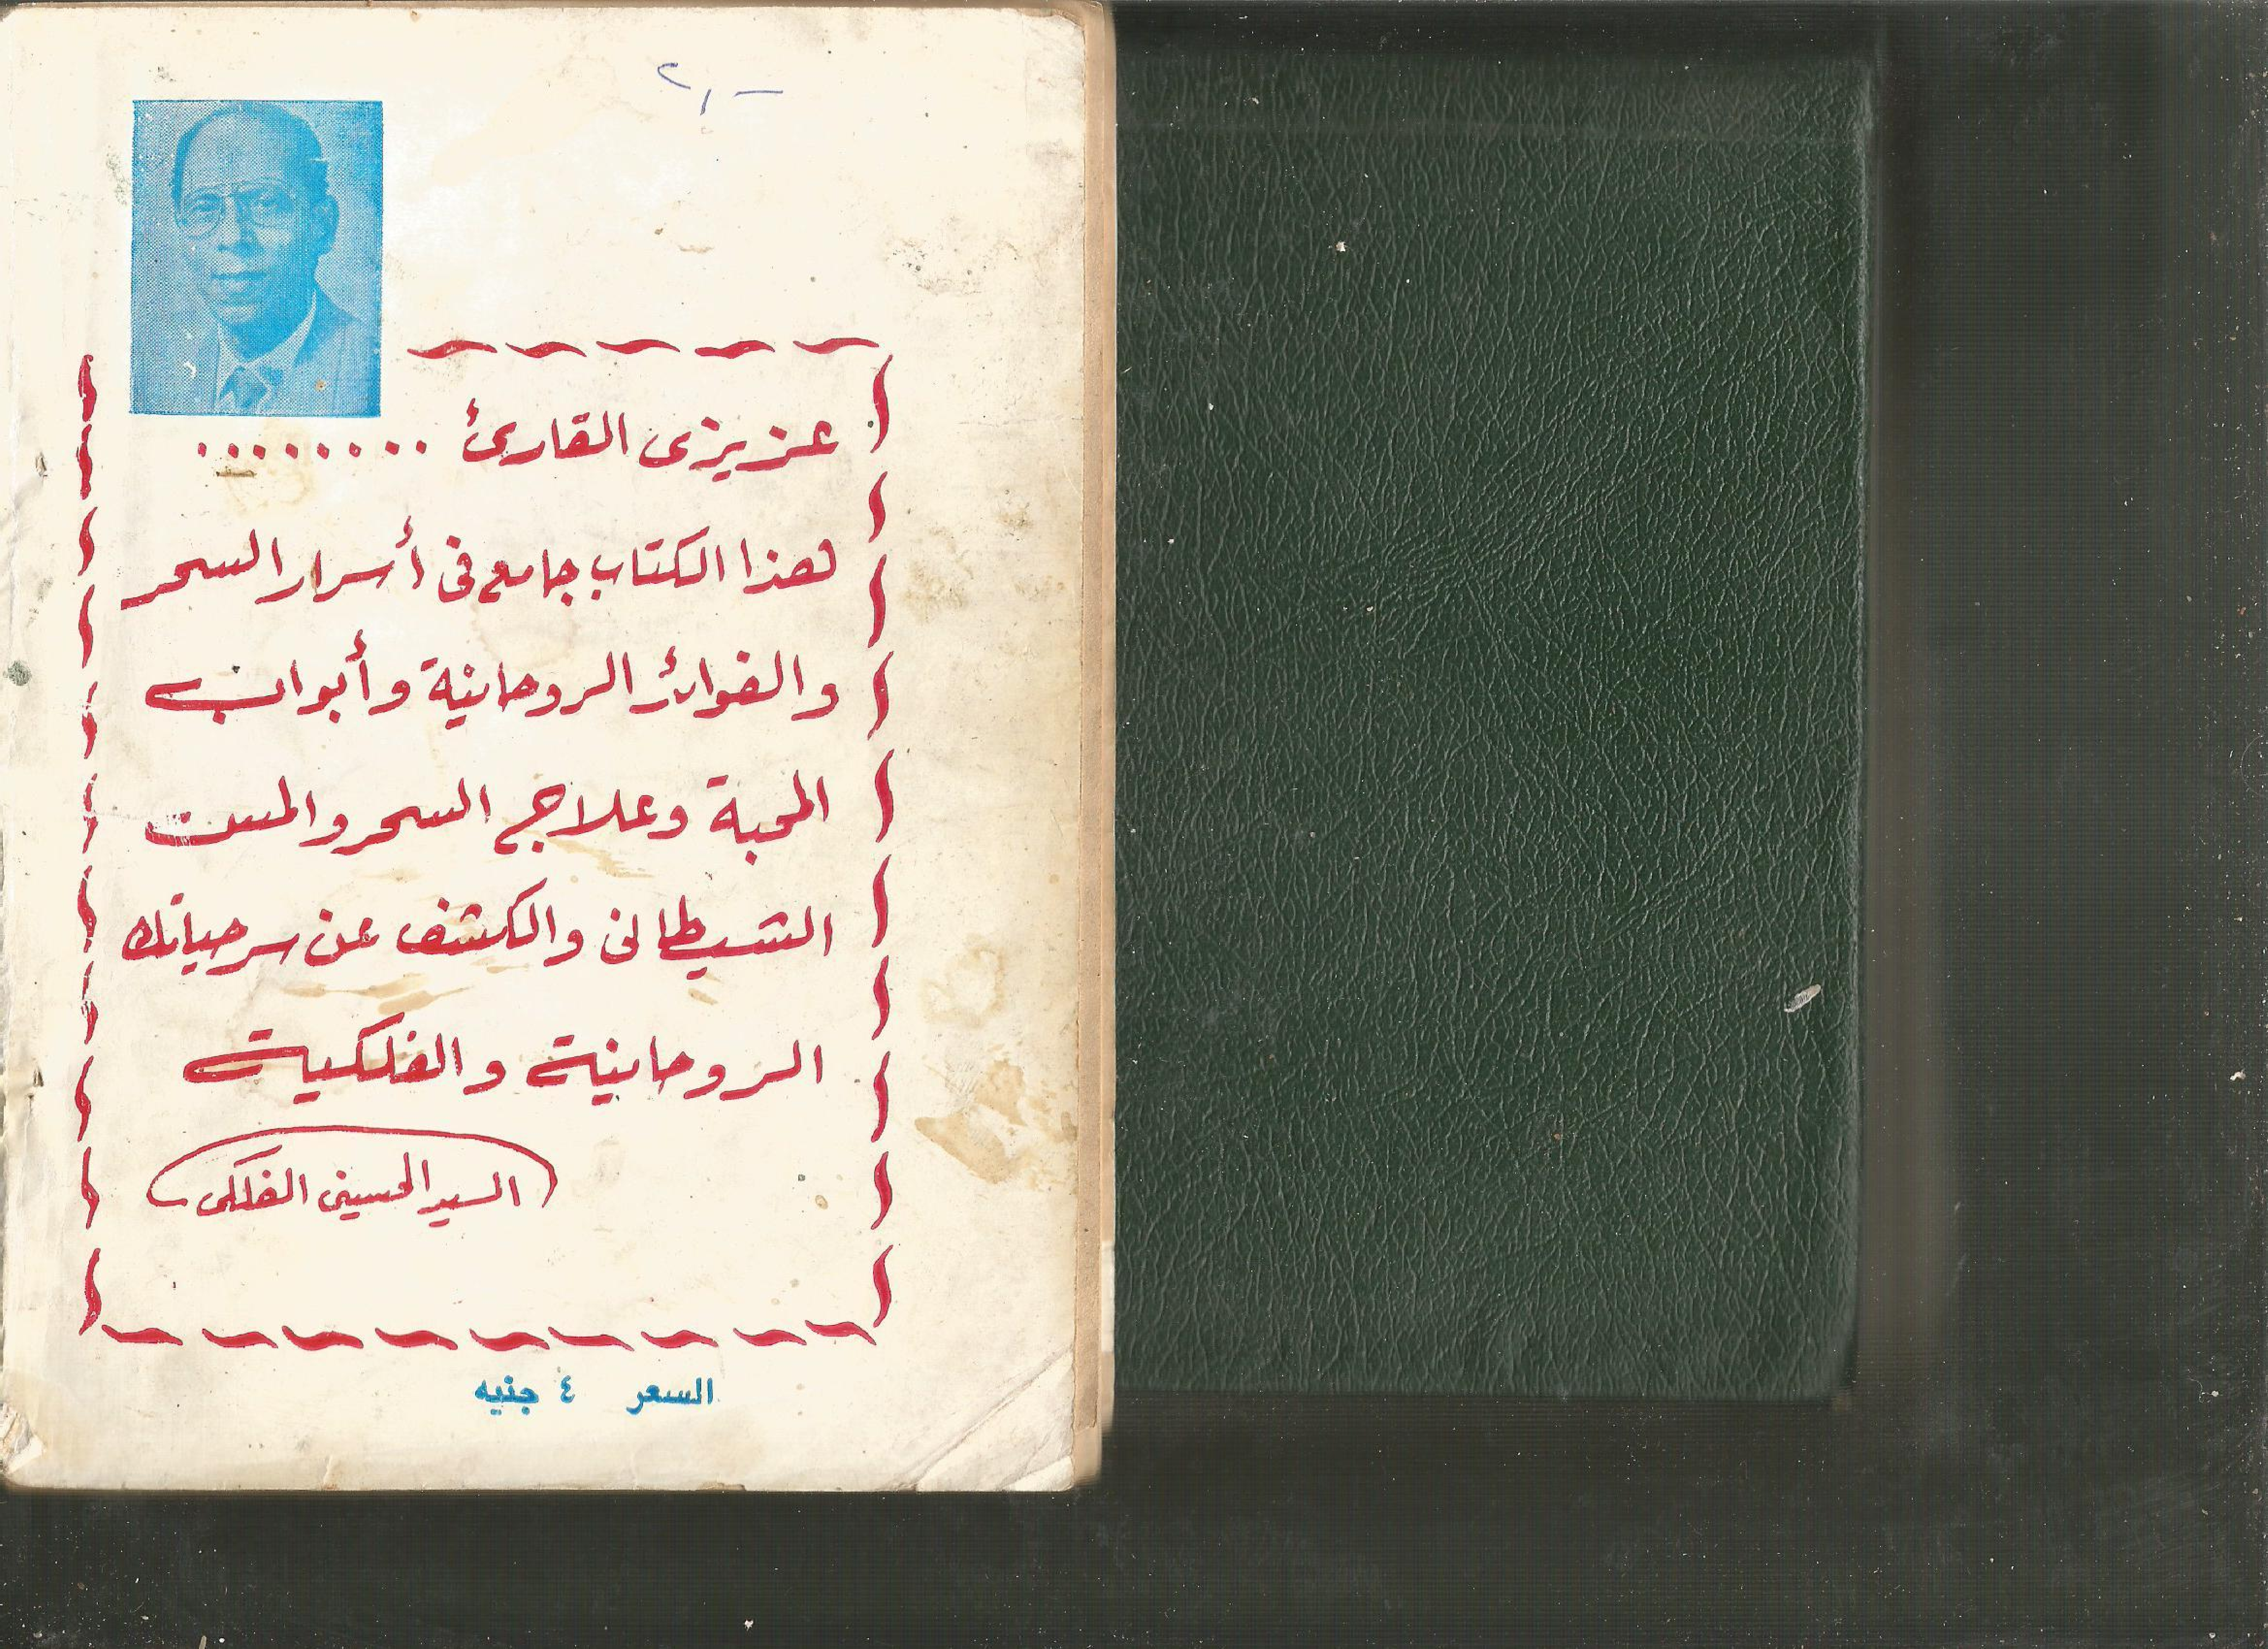 ٢,-
عزيزى القارئ ........
هذا الكتاب جامع فى أسرار السحر
والفوائد الروحانية وأبواب
المحبة وعلاج السحر والمس
الشيطانى والكشف عن سر حياتك
الروحانية والفلكية
السيد الحسينى الفلكى
السعر ٤ جنيه